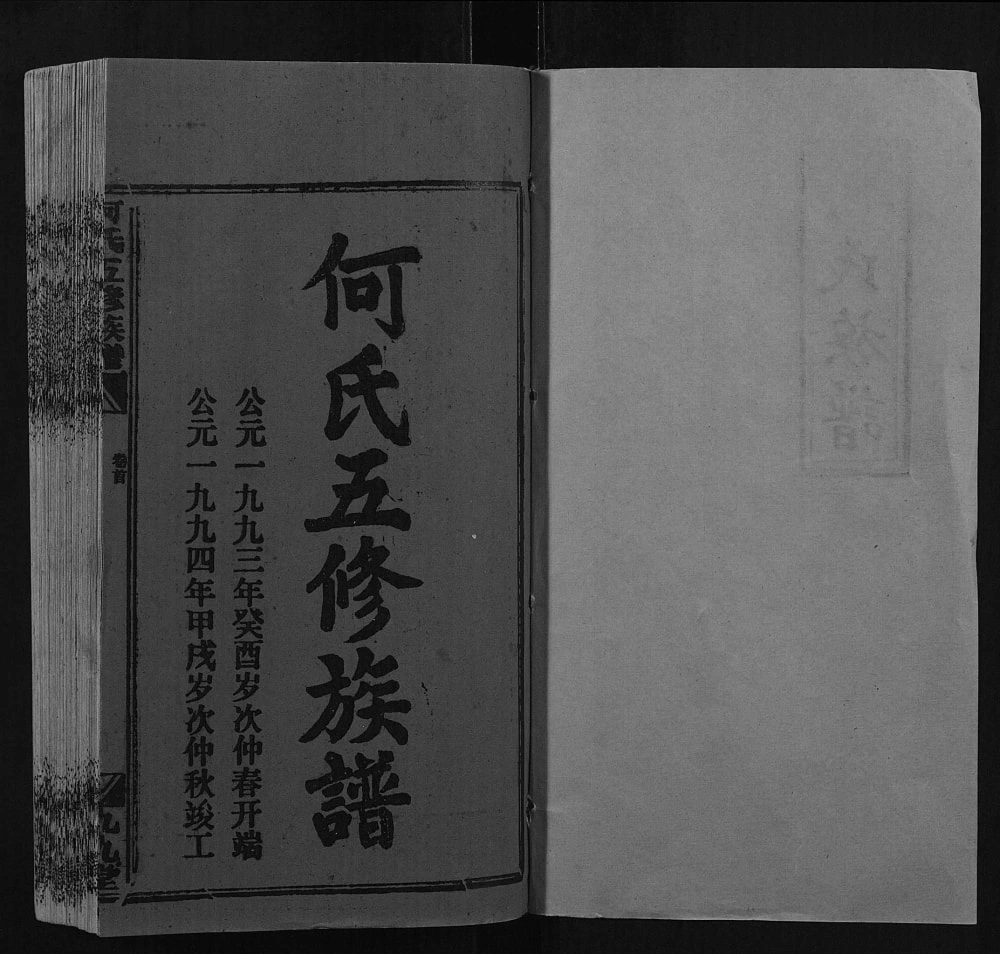 何氏五修族譜
公元一九九三年癸酉岁次仲春开端
公元一九九四年甲戌岁次仲秋竣工
何氏五修族譜
卷首
九九堂
氏族譜